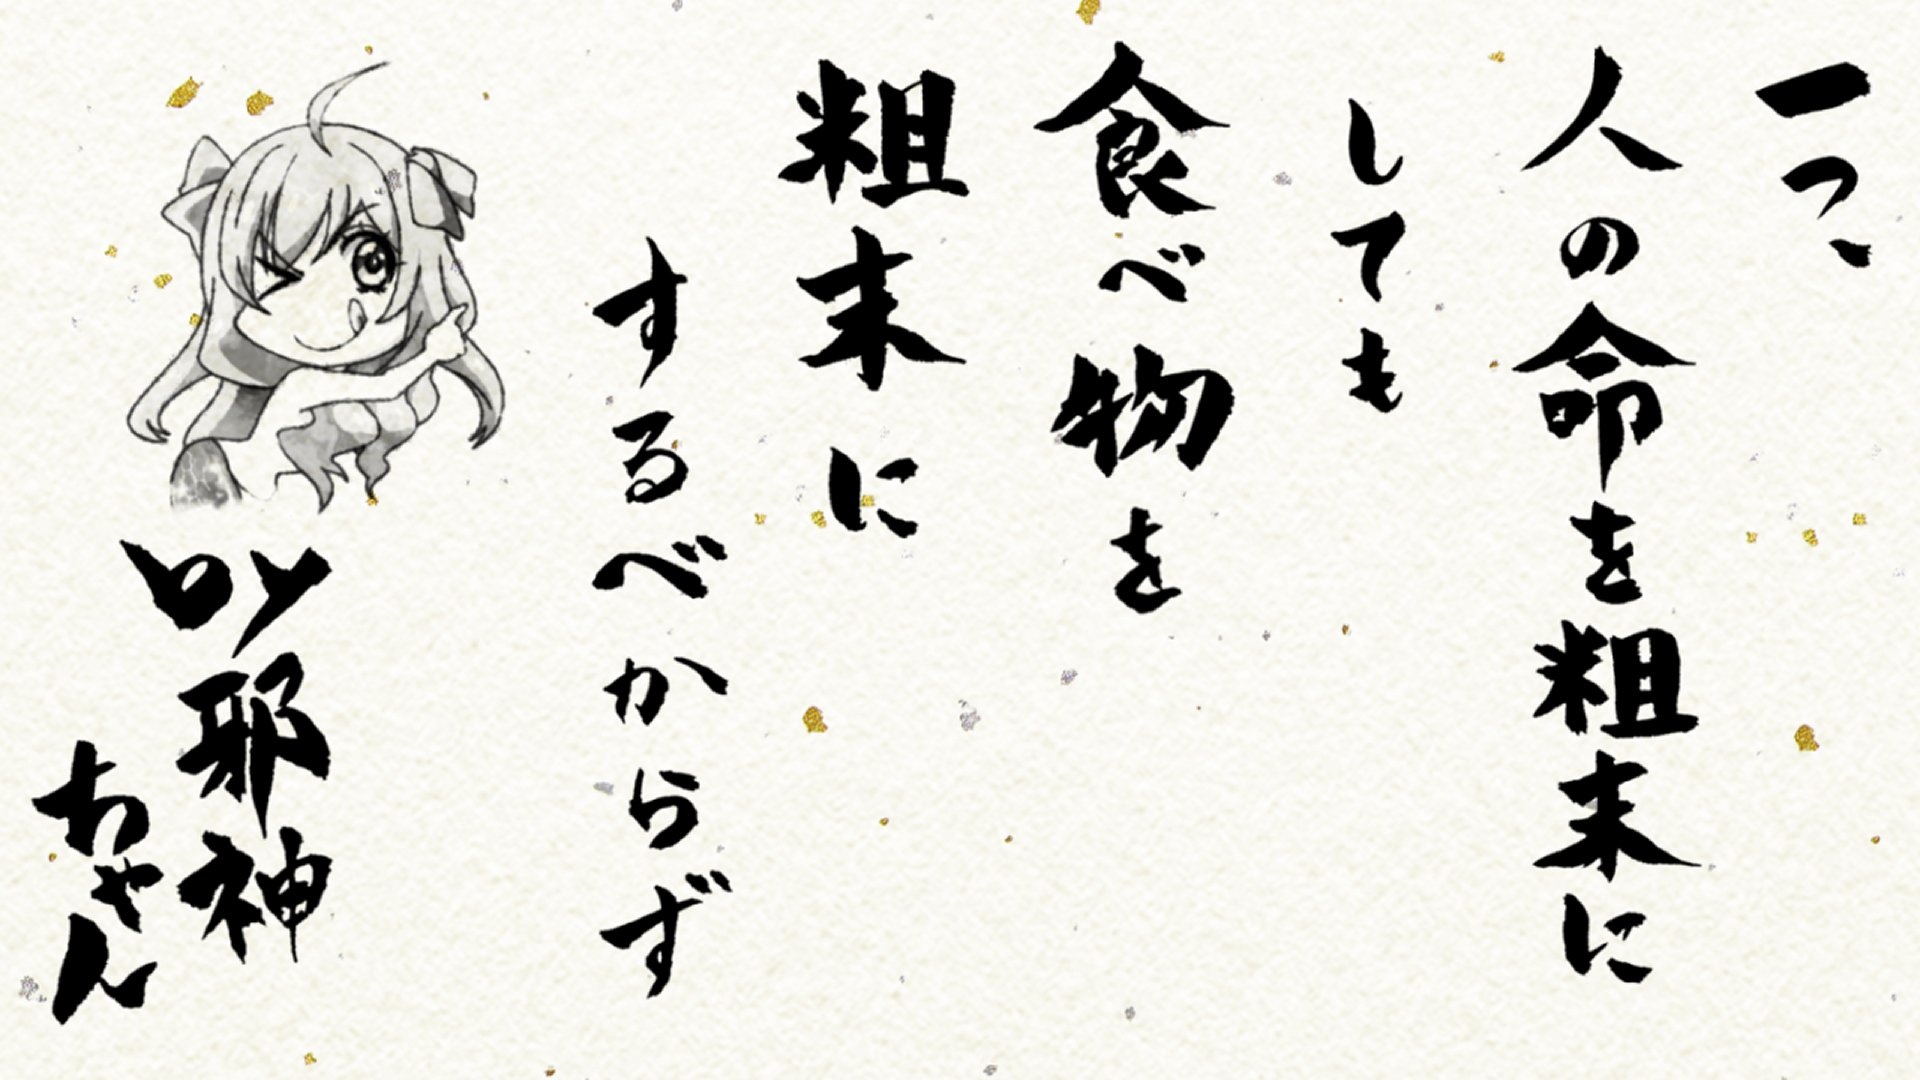 一つ、
人の命を粗末に
しても
食べ物を
粗末に
するべからず
by邪神
ちゃん